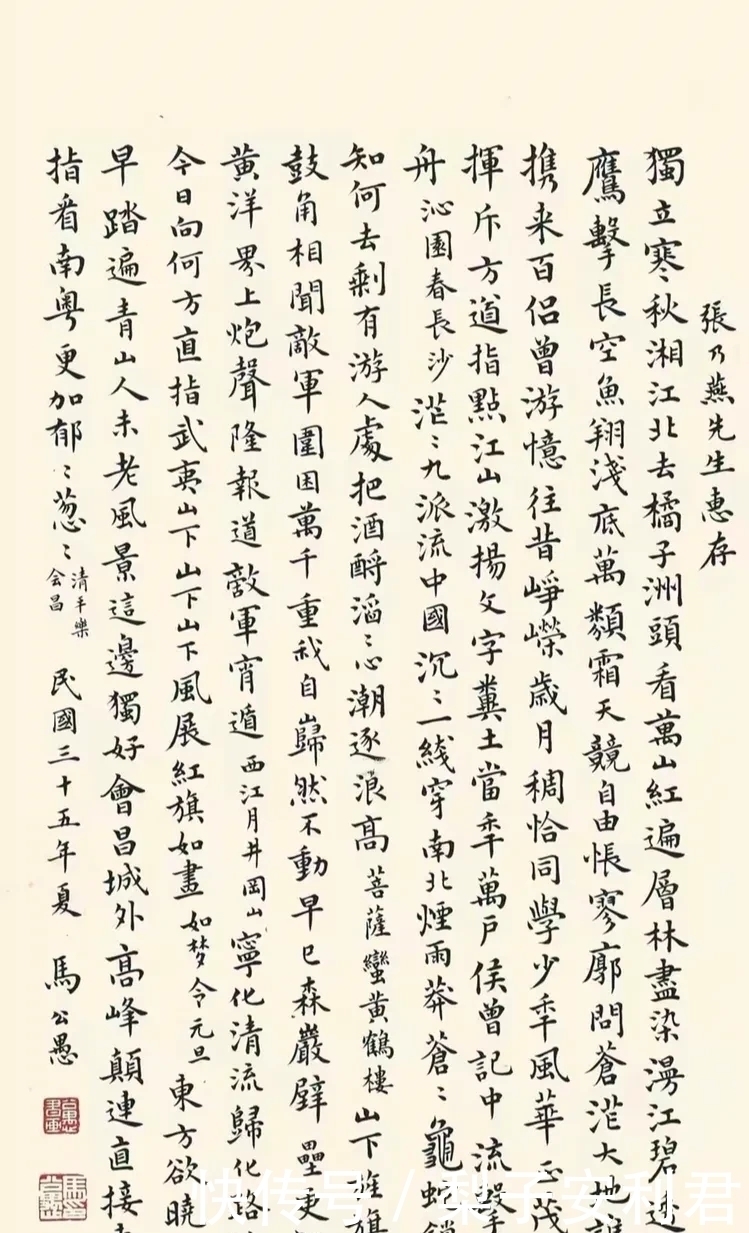 張乃燕先生惠存
獨立寒秋湘江北去橘子洲頭看萬山紅遍層林盡染漫江碧
鷹擊長空魚翔淺底萬類霜天競自由悵寥廓問蒼茫大地誰
攜来百侶曾游憶往昔崢嶸歲月稠恰同學少年風華正茂
揮斥方遒指點江山激揚文字糞土當年萬戶侯曾記中流擊
舟 沁園春長沙 茫〻九派流中國沉〻一綫穿南北煙雨莽蒼〻龜蛇鎖
知何去剩有游人處把酒酹滔〻心潮逐浪高 菩薩蠻黃鶴樓 山下旌旗
鼓角相聞敵軍圍困萬千重我自巋然不動早已森嚴壁壘更
黃洋界上炮聲隆報道敵軍宵遁 西江月井岡山 寧化清流歸化路
今日向何方直指武夷山下山下山下風展紅旗如畫 如梦令元旦 東方欲曉
早踏遍青山人未老風景這邊獨好會昌城外高峰顛連直接
指看南粵更加郁〻葱〻 清平樂会昌 民國三十五年夏 馬公愚
快传号/梨子安利君